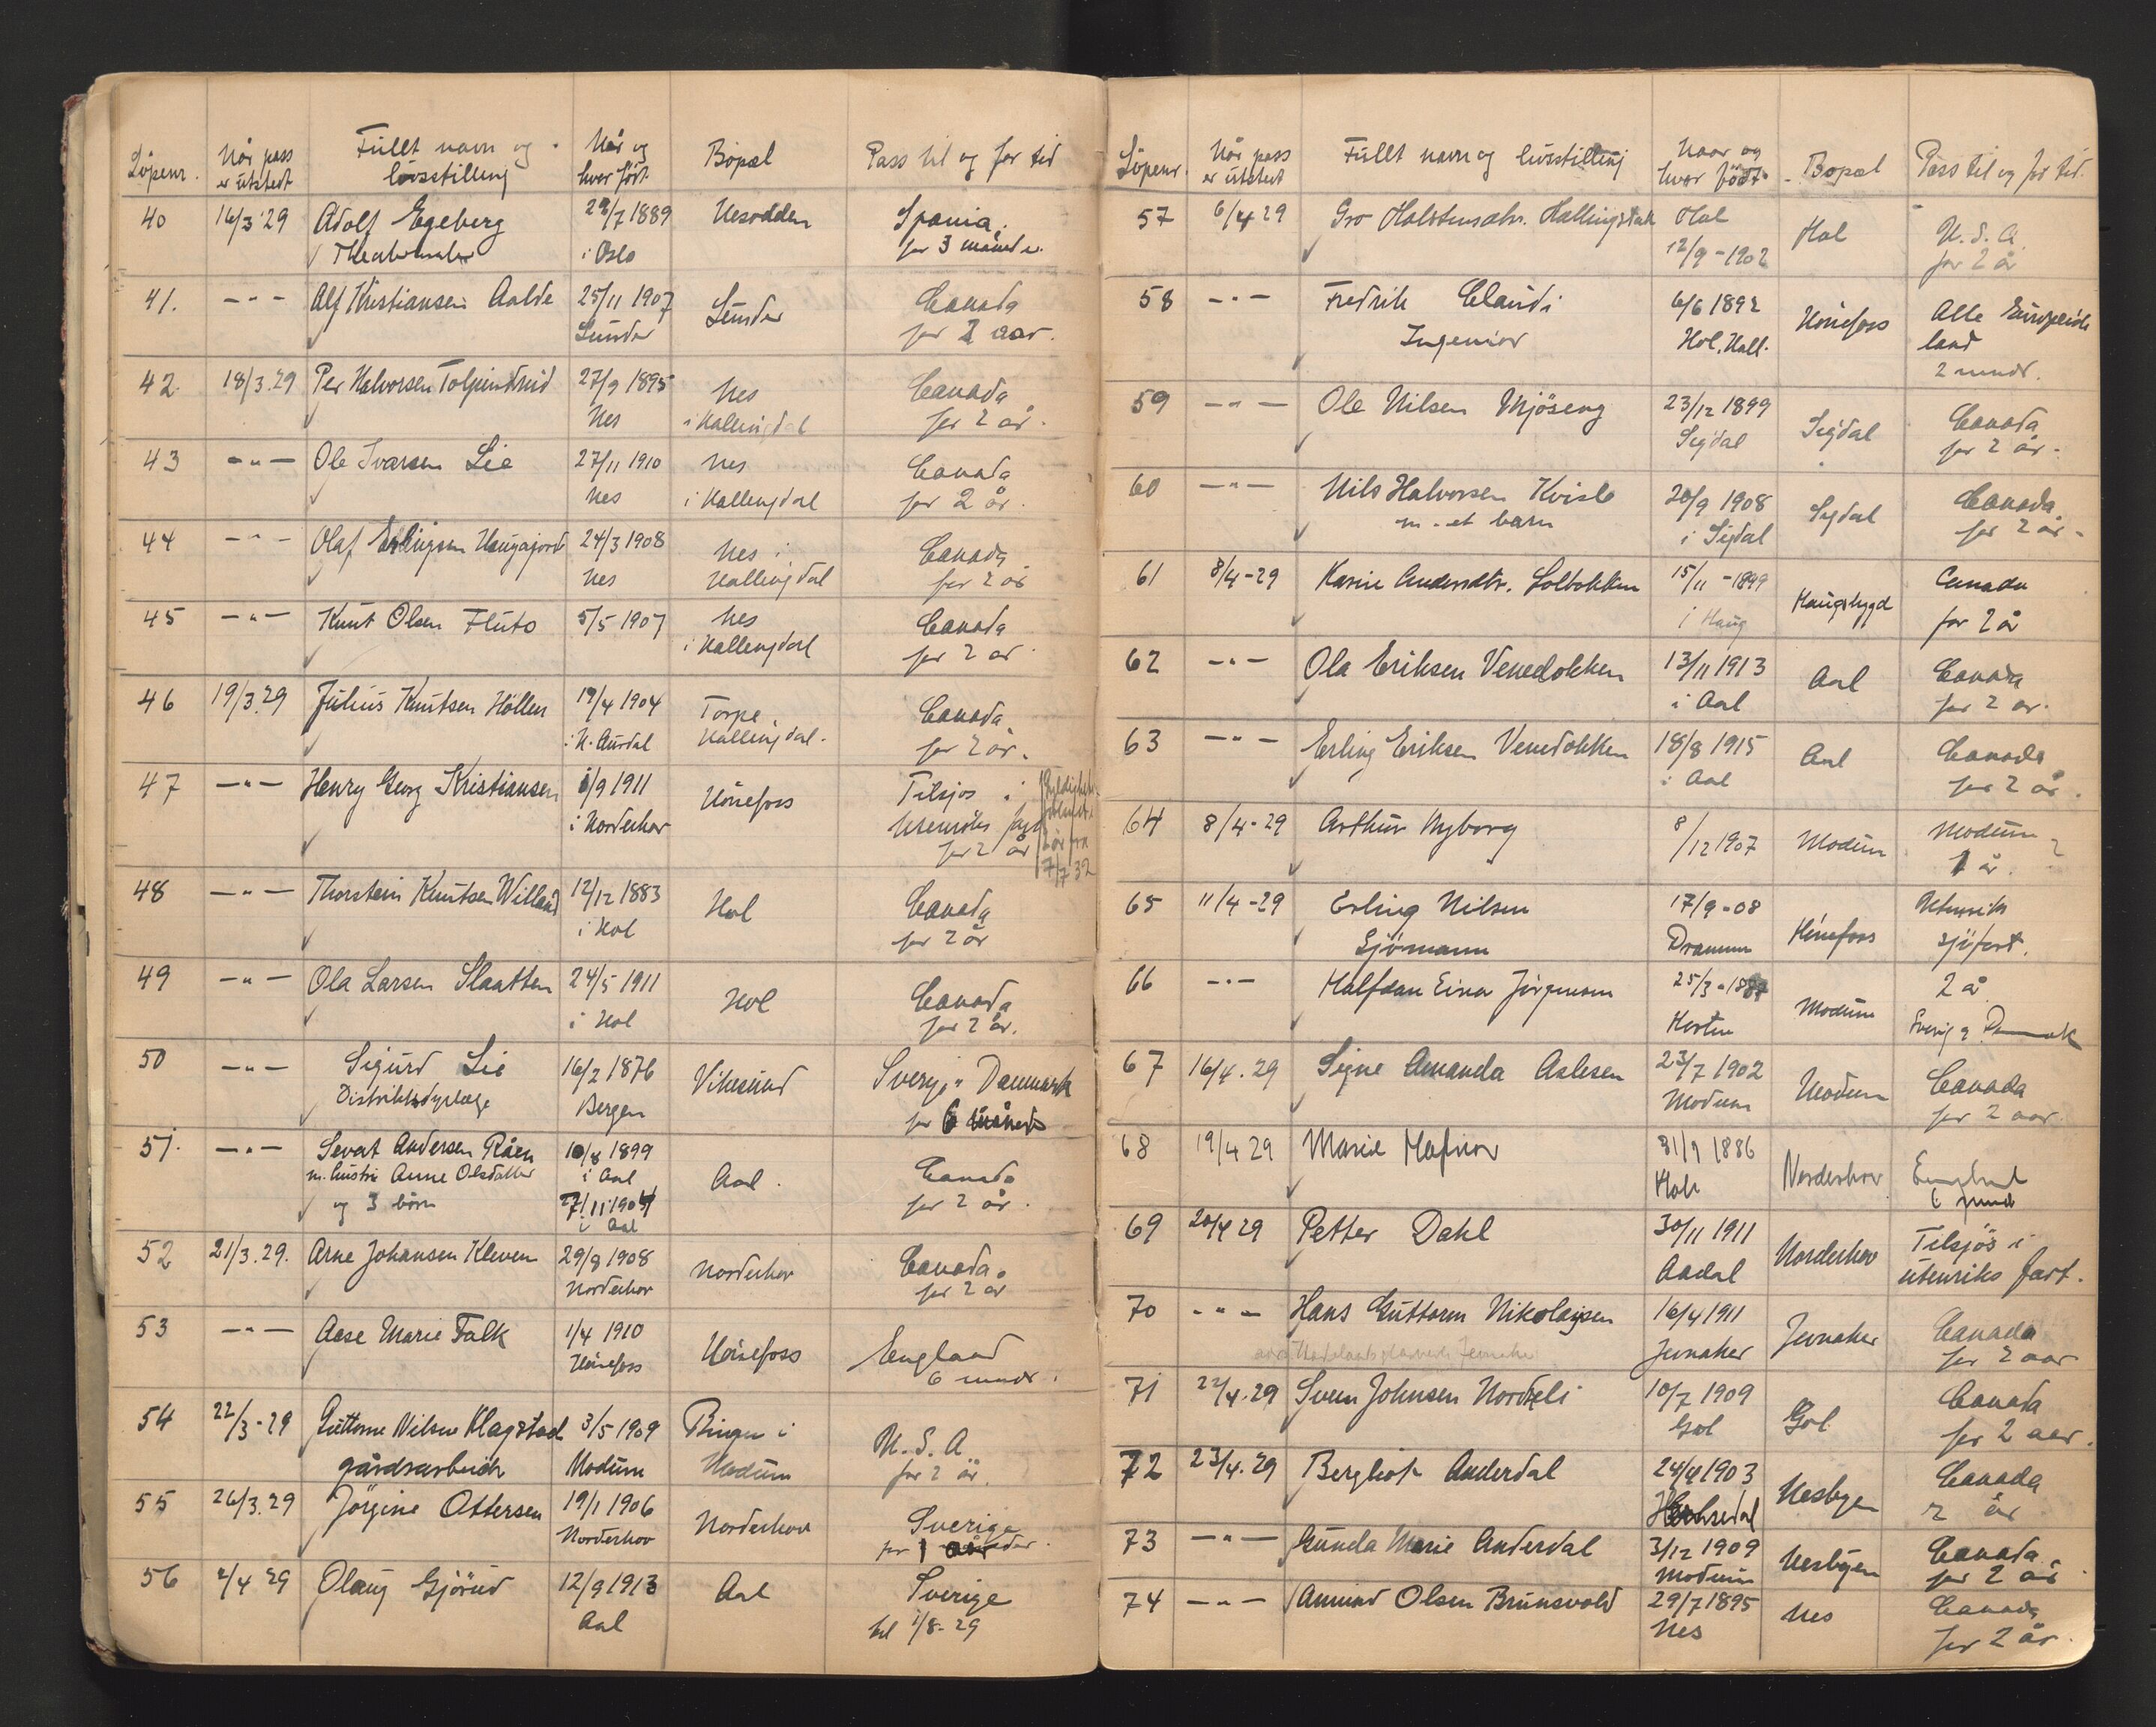 Löpenr. När pass er utstedt Fullt navn og livsstilling När og hvor født Bopæl Pass til og for tid
40 16/3 29 Adolf Egeberg 29/7 1889 Nesodden Spania
i Oslo for 3 måneder.
41. -"- Alf Kristiansen Aalde 25/11 1907 Lunder Canada
Lunder for 2 aar.
42 18/3.29 Per Halvorsen Tolpinrud 27/9 1895 Nes Canada
Nes i Hallingdal for 2 år.
43 -"- Ole Ivarsen Lie 27/11 1910 Nes Canada
Nes i Hallingdal for 2 år.
44 -"- Olaf Erlingsen Haugajord 24/3 1908 Nes i Canada
Nes Hallingdal for 2 år
45 -"- Knut Olsen Fluto 5/5 1907 Nes Canada
i Hallingdal for 2 år
46 19/3.29 Julius Knutsen Höllen 19/4 1904 Torpe Canada
i N. Aurdal Hallingdal. for 2 år.
47 -"- Henry Georg Kristiansen 1/9 1911 Hönefoss Tilsjøs i
i Norderhov utenriks fart
for 2 år
2 år fra
7/7 32
48 -"- Thorstein Knutsen Villand 12/12 1883 Hol Canada
i Hol for 2 år
49 -"- Ola Larsen Slaatten 24/5 1911 Hol Canada
i Hol for 2 år.
50 -"- Sigurd Lie 16/2 1876 Vikesund Sverige " Danmark
Distriktsdyrlæge Bergen for 6 måneder
51. -"- Sevat Andersen Råen 10/8 1899 Aal. Canada
m. hustru Anne Olsdatter i Aal for 2 år.
og 3 börn 27/11 1904
i Aal
52 21/3.29. Arne Johansen Kleven 29/8 1908 Norderhov Canada.
Norderhov for 2 år
53 -"- Aase Marie Falk 1/4 1910 Hönefoss England
Hönefoss 6 mndr.
54 22/3-29 Guttorm Nilsen Klagstad 3/5 1909 Bingen i U.S.A.
gårdsarbeider Modum Modum for 2 år.
55 26/3.29 Jörgine Ottersen 19/1 1906 Norderhov Sverige
Norderhov for 1
56 2/4 29 Olaug Gjörud 12/9 1913 Aal Sverige
Aal til 1/8-29
Löpenr. Når pass er utstedt Fullt navn og livsstilling Naar og hvor födt Bopæl Pass til og for tid.
57 6/4 29 Gro Holstensdtr. Hallingstad Hol Hol U.S.A.
12/9-1902 for 2 år
58 -"- Fredrik Claudi 6/6 1892 Hönefoss Alle Europeiske
Ingeniör Hol, Hall. land
2 mndr.
59 -"- Ole Nilsen Mjöseng 23/12 1899 Sigdal Canada
Sigdal for 2 år.
60 -"- Nils Halvorsen Kvisle 20/9 1908 Sigdal Canada
m. et barn i Sigdal for 2 år.
61 8/4-29 Karine Andersdtr. Solbakken 15/11-1899 Haugsbygd Canada
i Haug for 2 år
62 -"- Ola Eriksen Venedokken 13/11 1913 Aal Canada
i Aal for 2 år.
63 -"- Erling Eriksen Venedokken 18/8 1915 Aal Canada
i Aal for 2 år.
64 8/4-29 Arthur Nyborg 8/12 1907 Modum Modum
1 år.
65 11/4-29 Erling Nilsen 17/9-08 Hönefoss Utenriks
Sjömann Drammen sjöfart.
66 -"- Halfdan Einar Jörgensen 25/3-1887 Modum 2 å
Sverige Danmark
67 16/4.29 Signe Amanda Aslesen 23/7 1902 Modum Canada
Modum for 2 aar.
68 19/4 29 Marie Hafnor 31/1 1886 Norderhov England
Hole 6 mnd
69 20/4 29 Petter Dahl 30/11 1911 Norderhov Tilsjös i
Aadal utenriks fart.
70 -"- Hans Guttorm Nikolaysen 16/4 1911 Jevnaker Canada
Jevnaker for 2 aar
71 22/4.29 Sven Johnsen Nordreli 10/7 1909 Gol Canada
Gol for 2 aar.
72 23/4.29 Bergliot Anderdal 24/4 1903 Nesbyen Canada
Hemsedal 2 år
73 -"- Gunda Marie Anderdal 3/12 1909 Nesbyen Canada
Modum for 2 år
74 -"- Amund Olsen Brunsvold 29/7 1895 Nes Canada
Nes for 2 år.